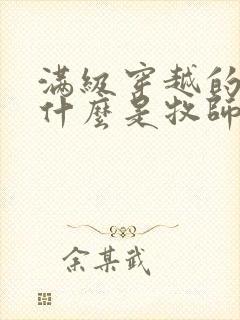 滿級穿越的
什麼是牧師
余某武